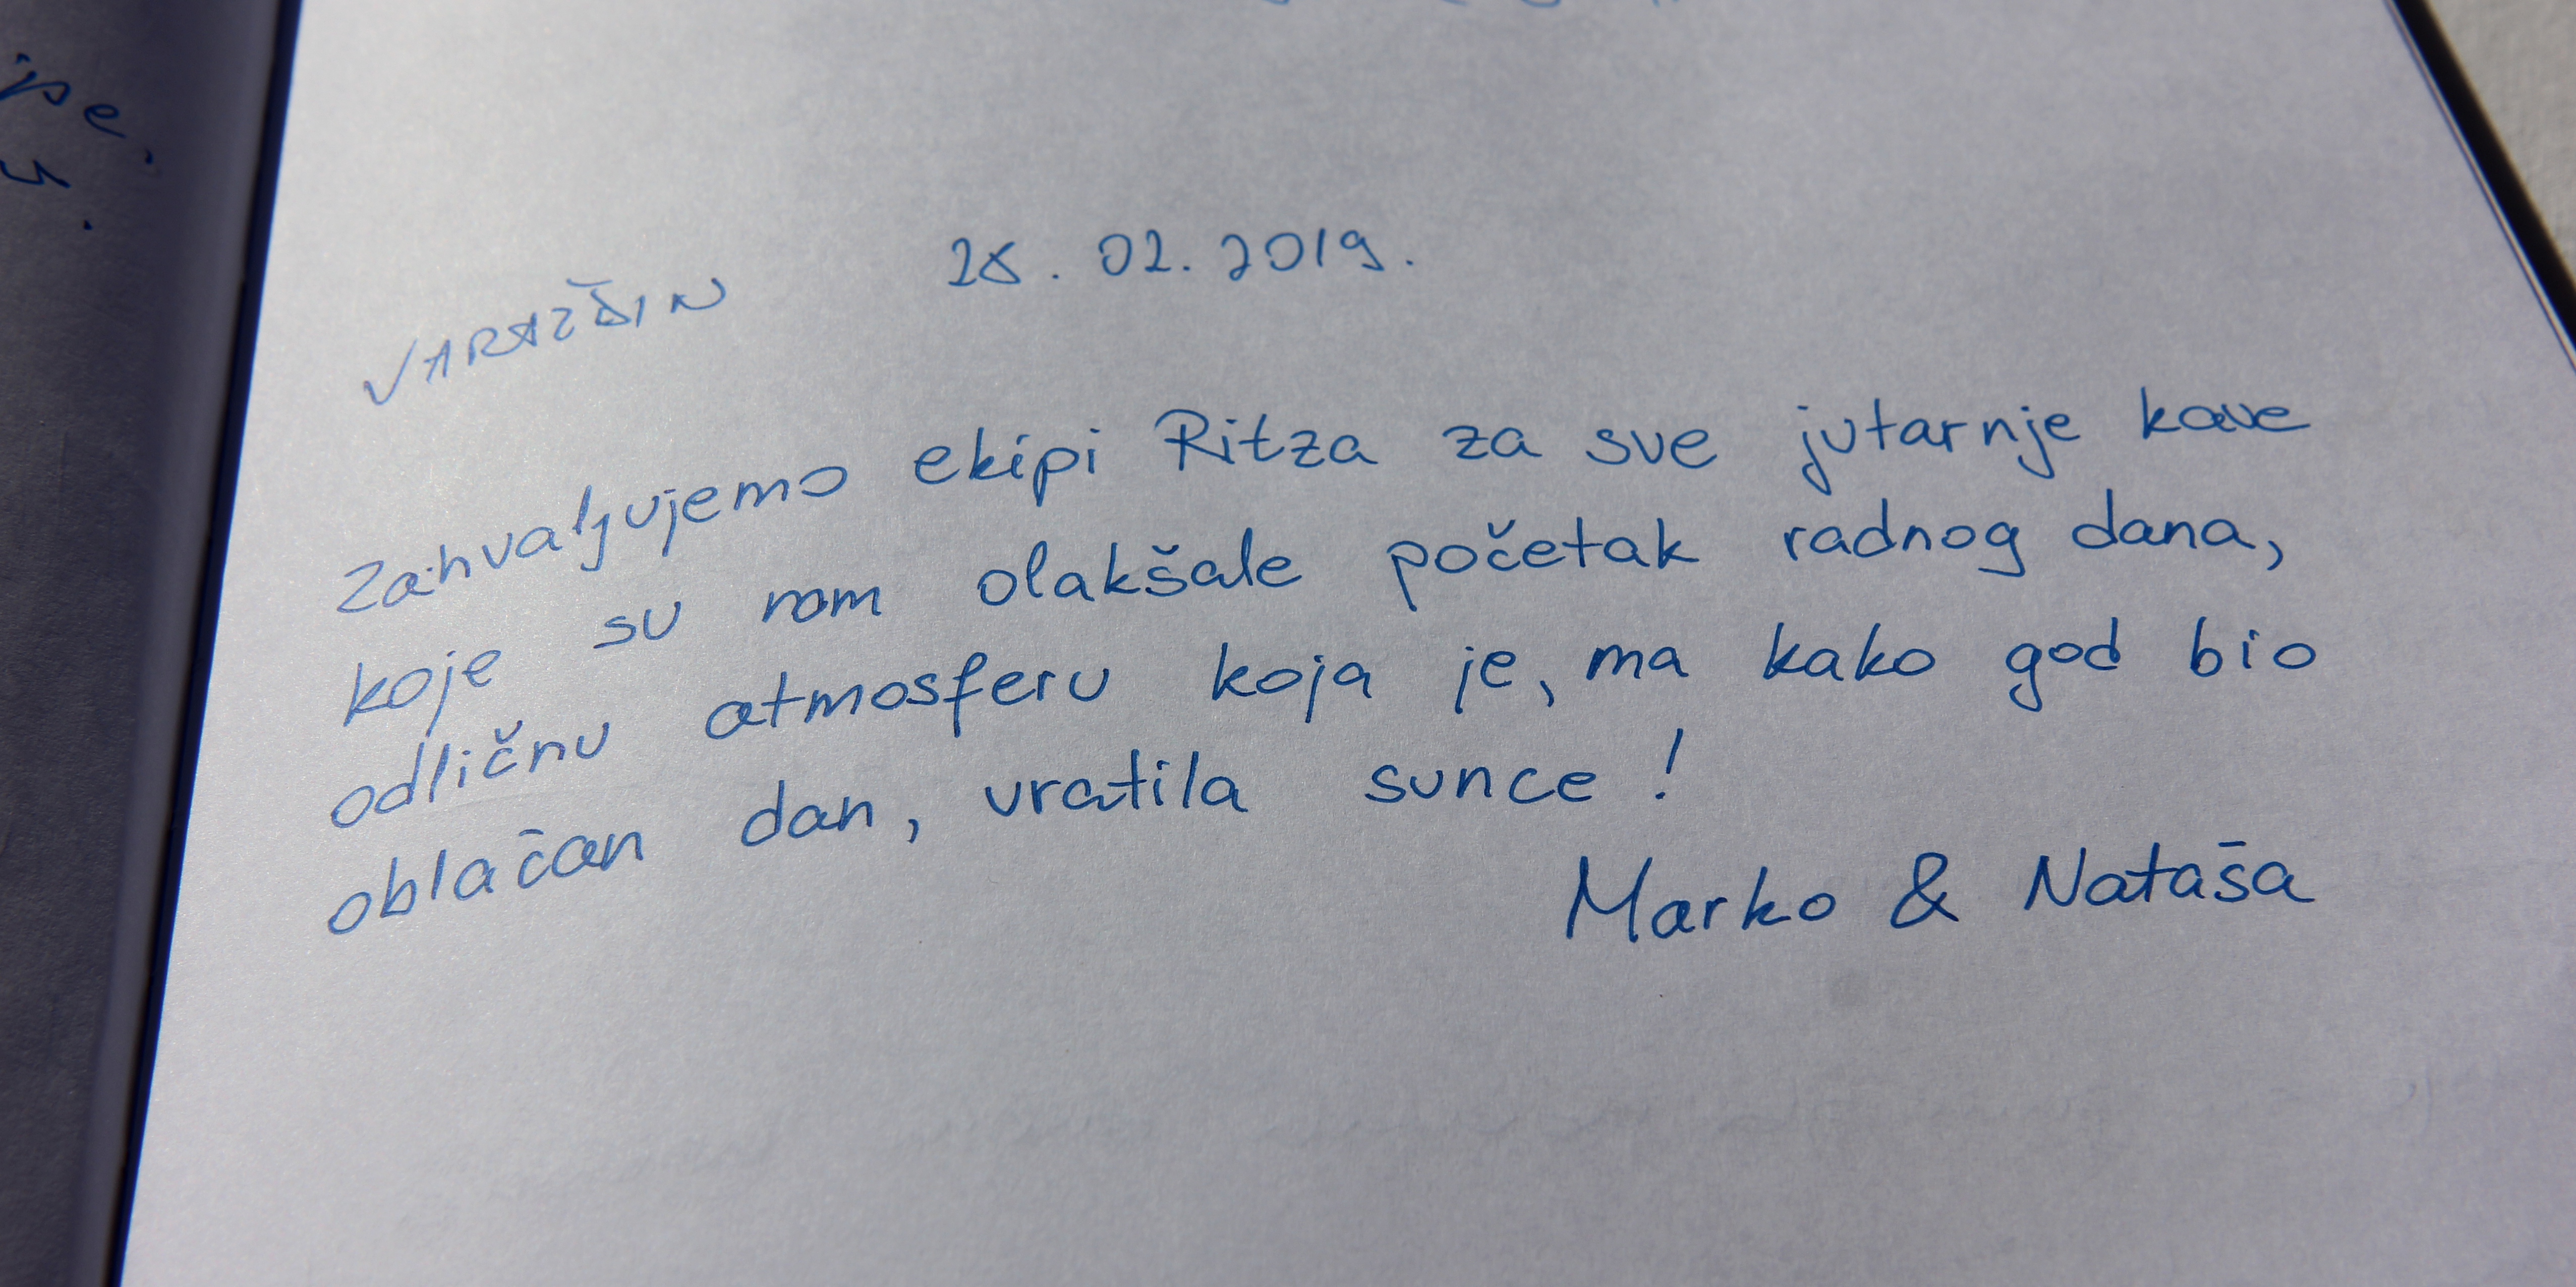 28.02.2019.
VARAŽDIN
Zahvaljujemo ekipi Ritza za sve jutarnje kave
koje su nam olakšale početak radnog dana,
odličnu atmosferu koja je, ma kako god bio
oblačan dan, vratila sunce!
Marko & Nataša